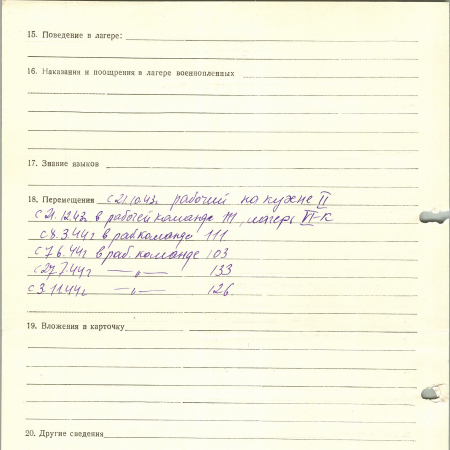 15. Поведение в лагере:
16. Наказания и поощрения в лагере военнопленных
17. Знание языков
18. Перемещения с 21.10.43. рабочий на кухне II
с 21.12.43. в рабочей команде 111, лагерь VI-К
с 8.3.44г в раб команде 111
с 7.6.44г в раб. команде 103
с 27.7.44г — „ — 133
с 3.11.44г. — „ — 126.
19. Вложения в карточку
20. Другие сведения